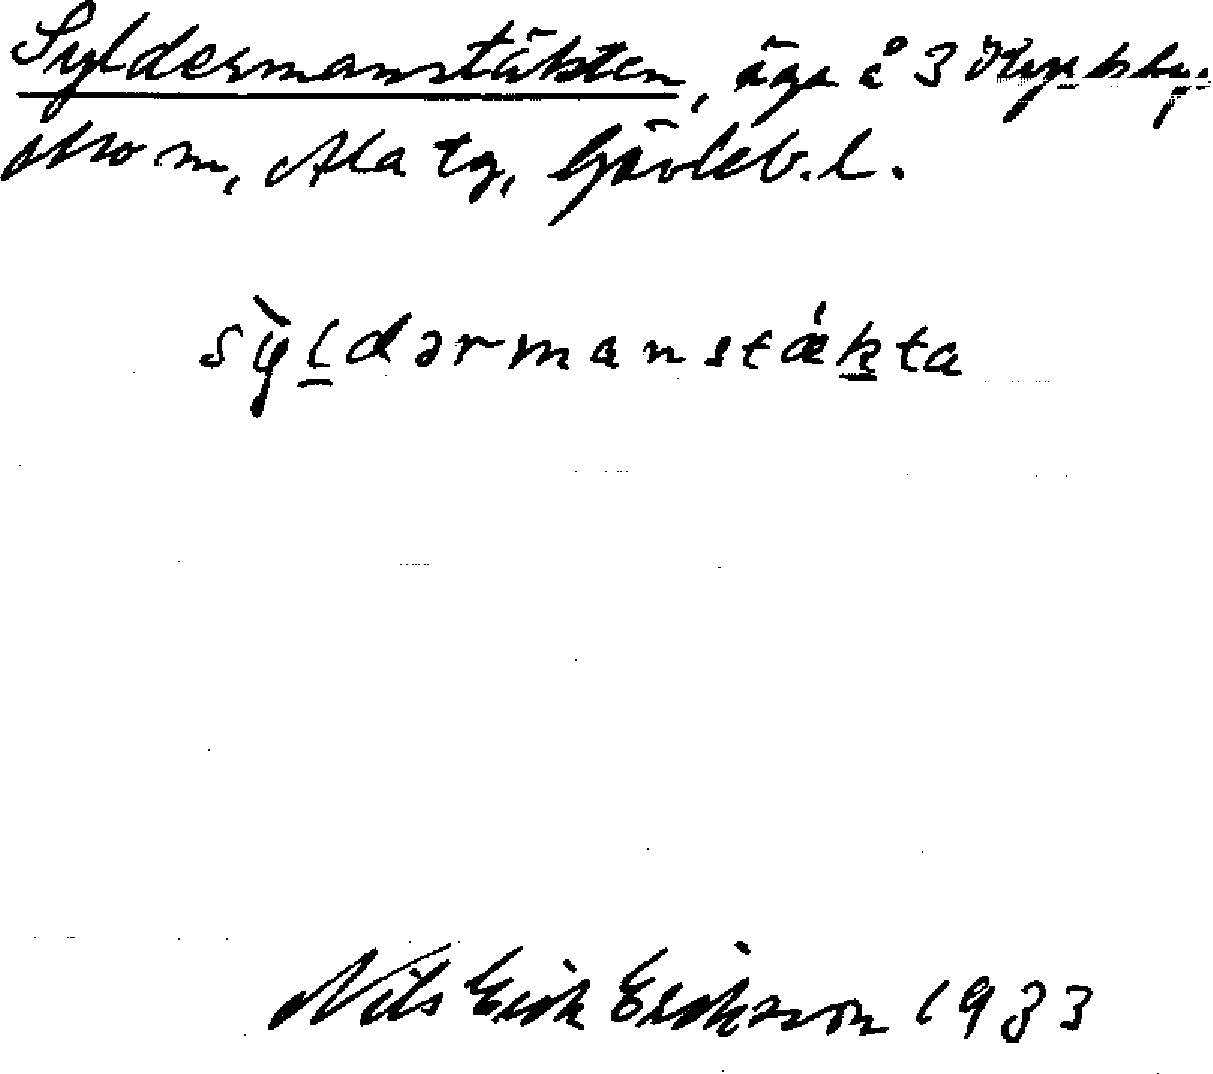 Syldermanstäkten, äga å 3 Kyrkby,
Mo sn, Ala tg, Gävleb. l.
sỳldərmanstǽkta
Nils Erik Erikson 1933